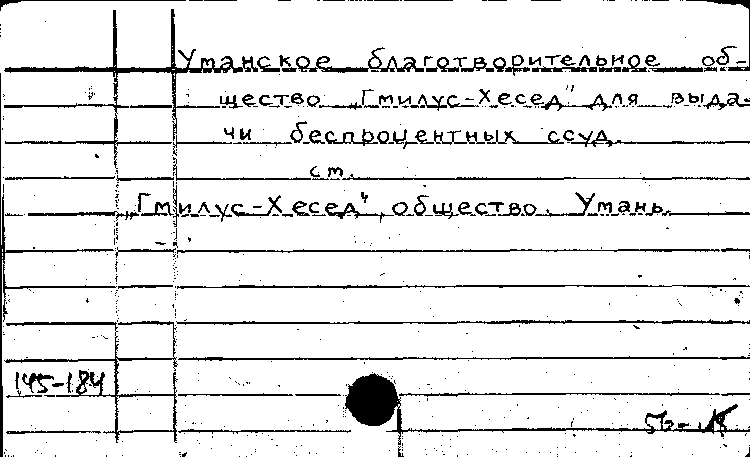 Уманское благотворительное об-
щество „Гмилус-Хесед" для выда-
чи беспроцентных ссуд.
см.
„Гмилус-Хесед", общество. Умань.
145-184